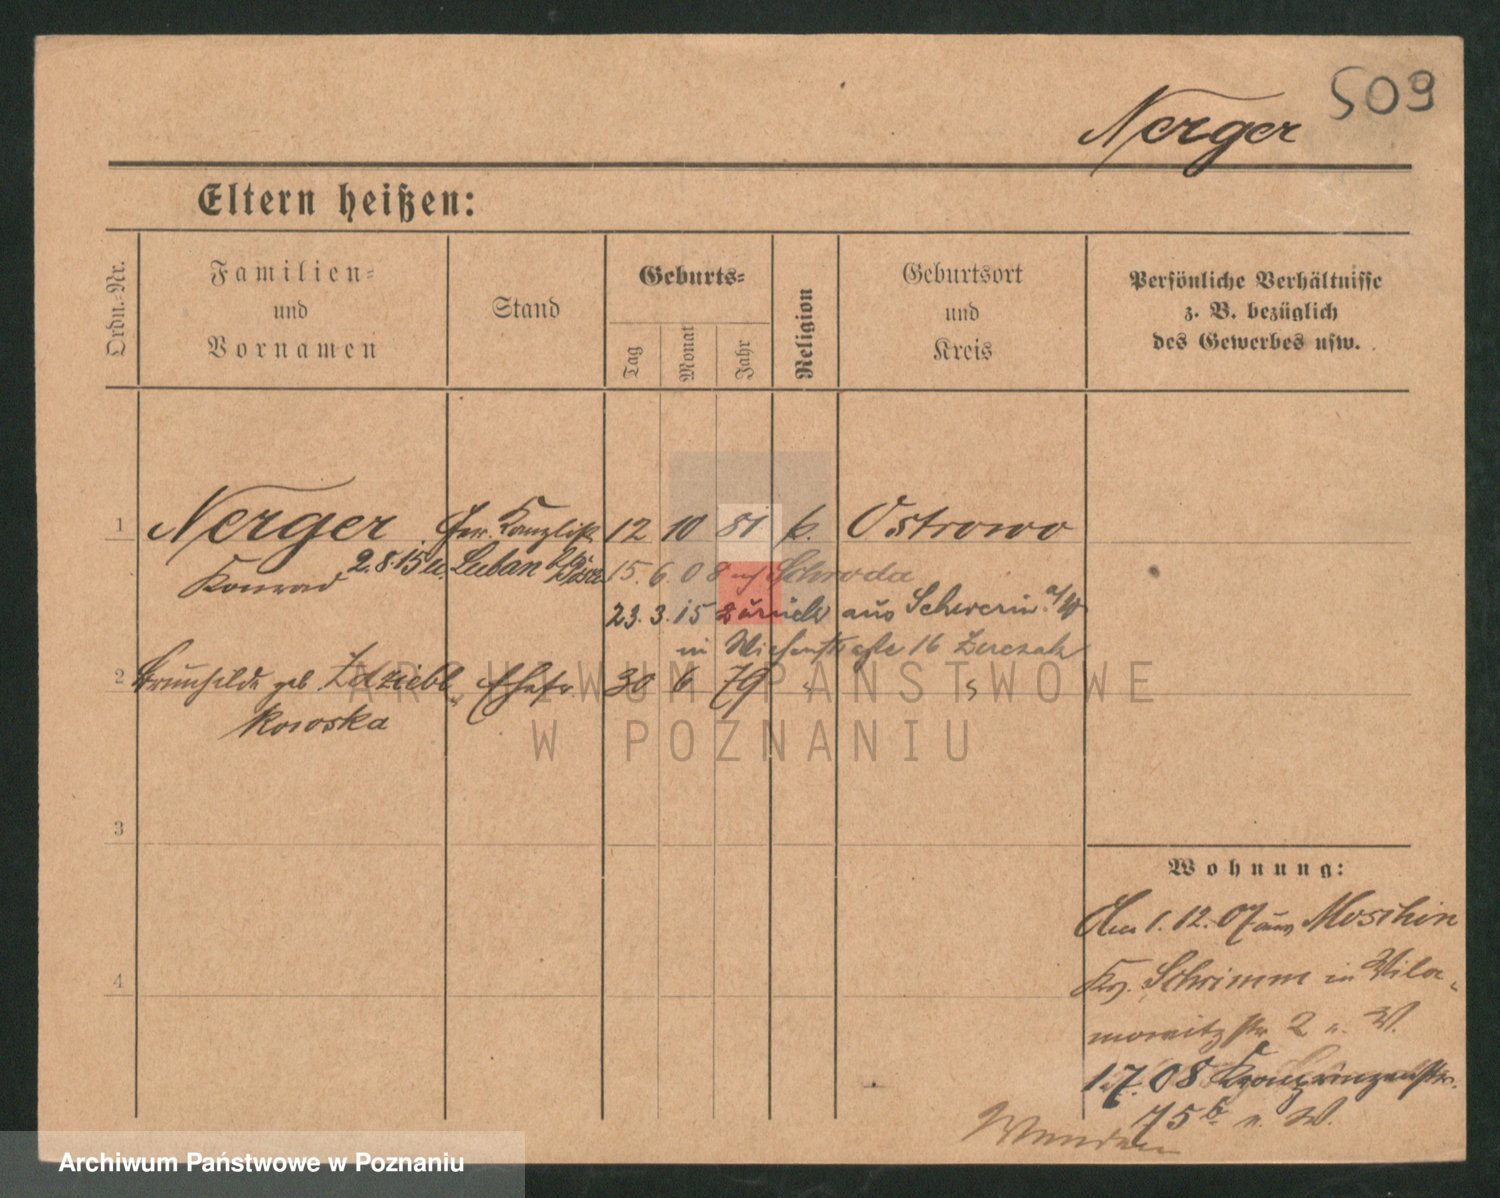 509
Nerger
Eltern heißen:
Ordn.-Nr.
Familien-
und
Vornamen
Stand
Geburts-
Tag
Monat
Jahr
Religion
Geburtsort
und
Kreis
Persönliche Verhältnisse
z. B. bezüglich
des Gewerbes usw.
1 Nerger Kanzlist 12 10 81 k. Ostrowo
Konrad 2.8.15 Luban
15. 6. 08 Schroda
23. 3. 15 zurück aus Schwerin a/W
in 16
2 geb. Zdziebl Ehefr. 30 6 79
kowska
3
4
Wohnung:
Am 1. 12. 07 aus Moschin
Kr. Schrimm in Wila-
mowitzstr 2 b. W.
1.7.08 Kronprinzenstr.
75 b. W.
Wenden
ARCHIWUM PAŃSTWOWE
W POZNANIU
Archiwum Państwowe w Poznaniu